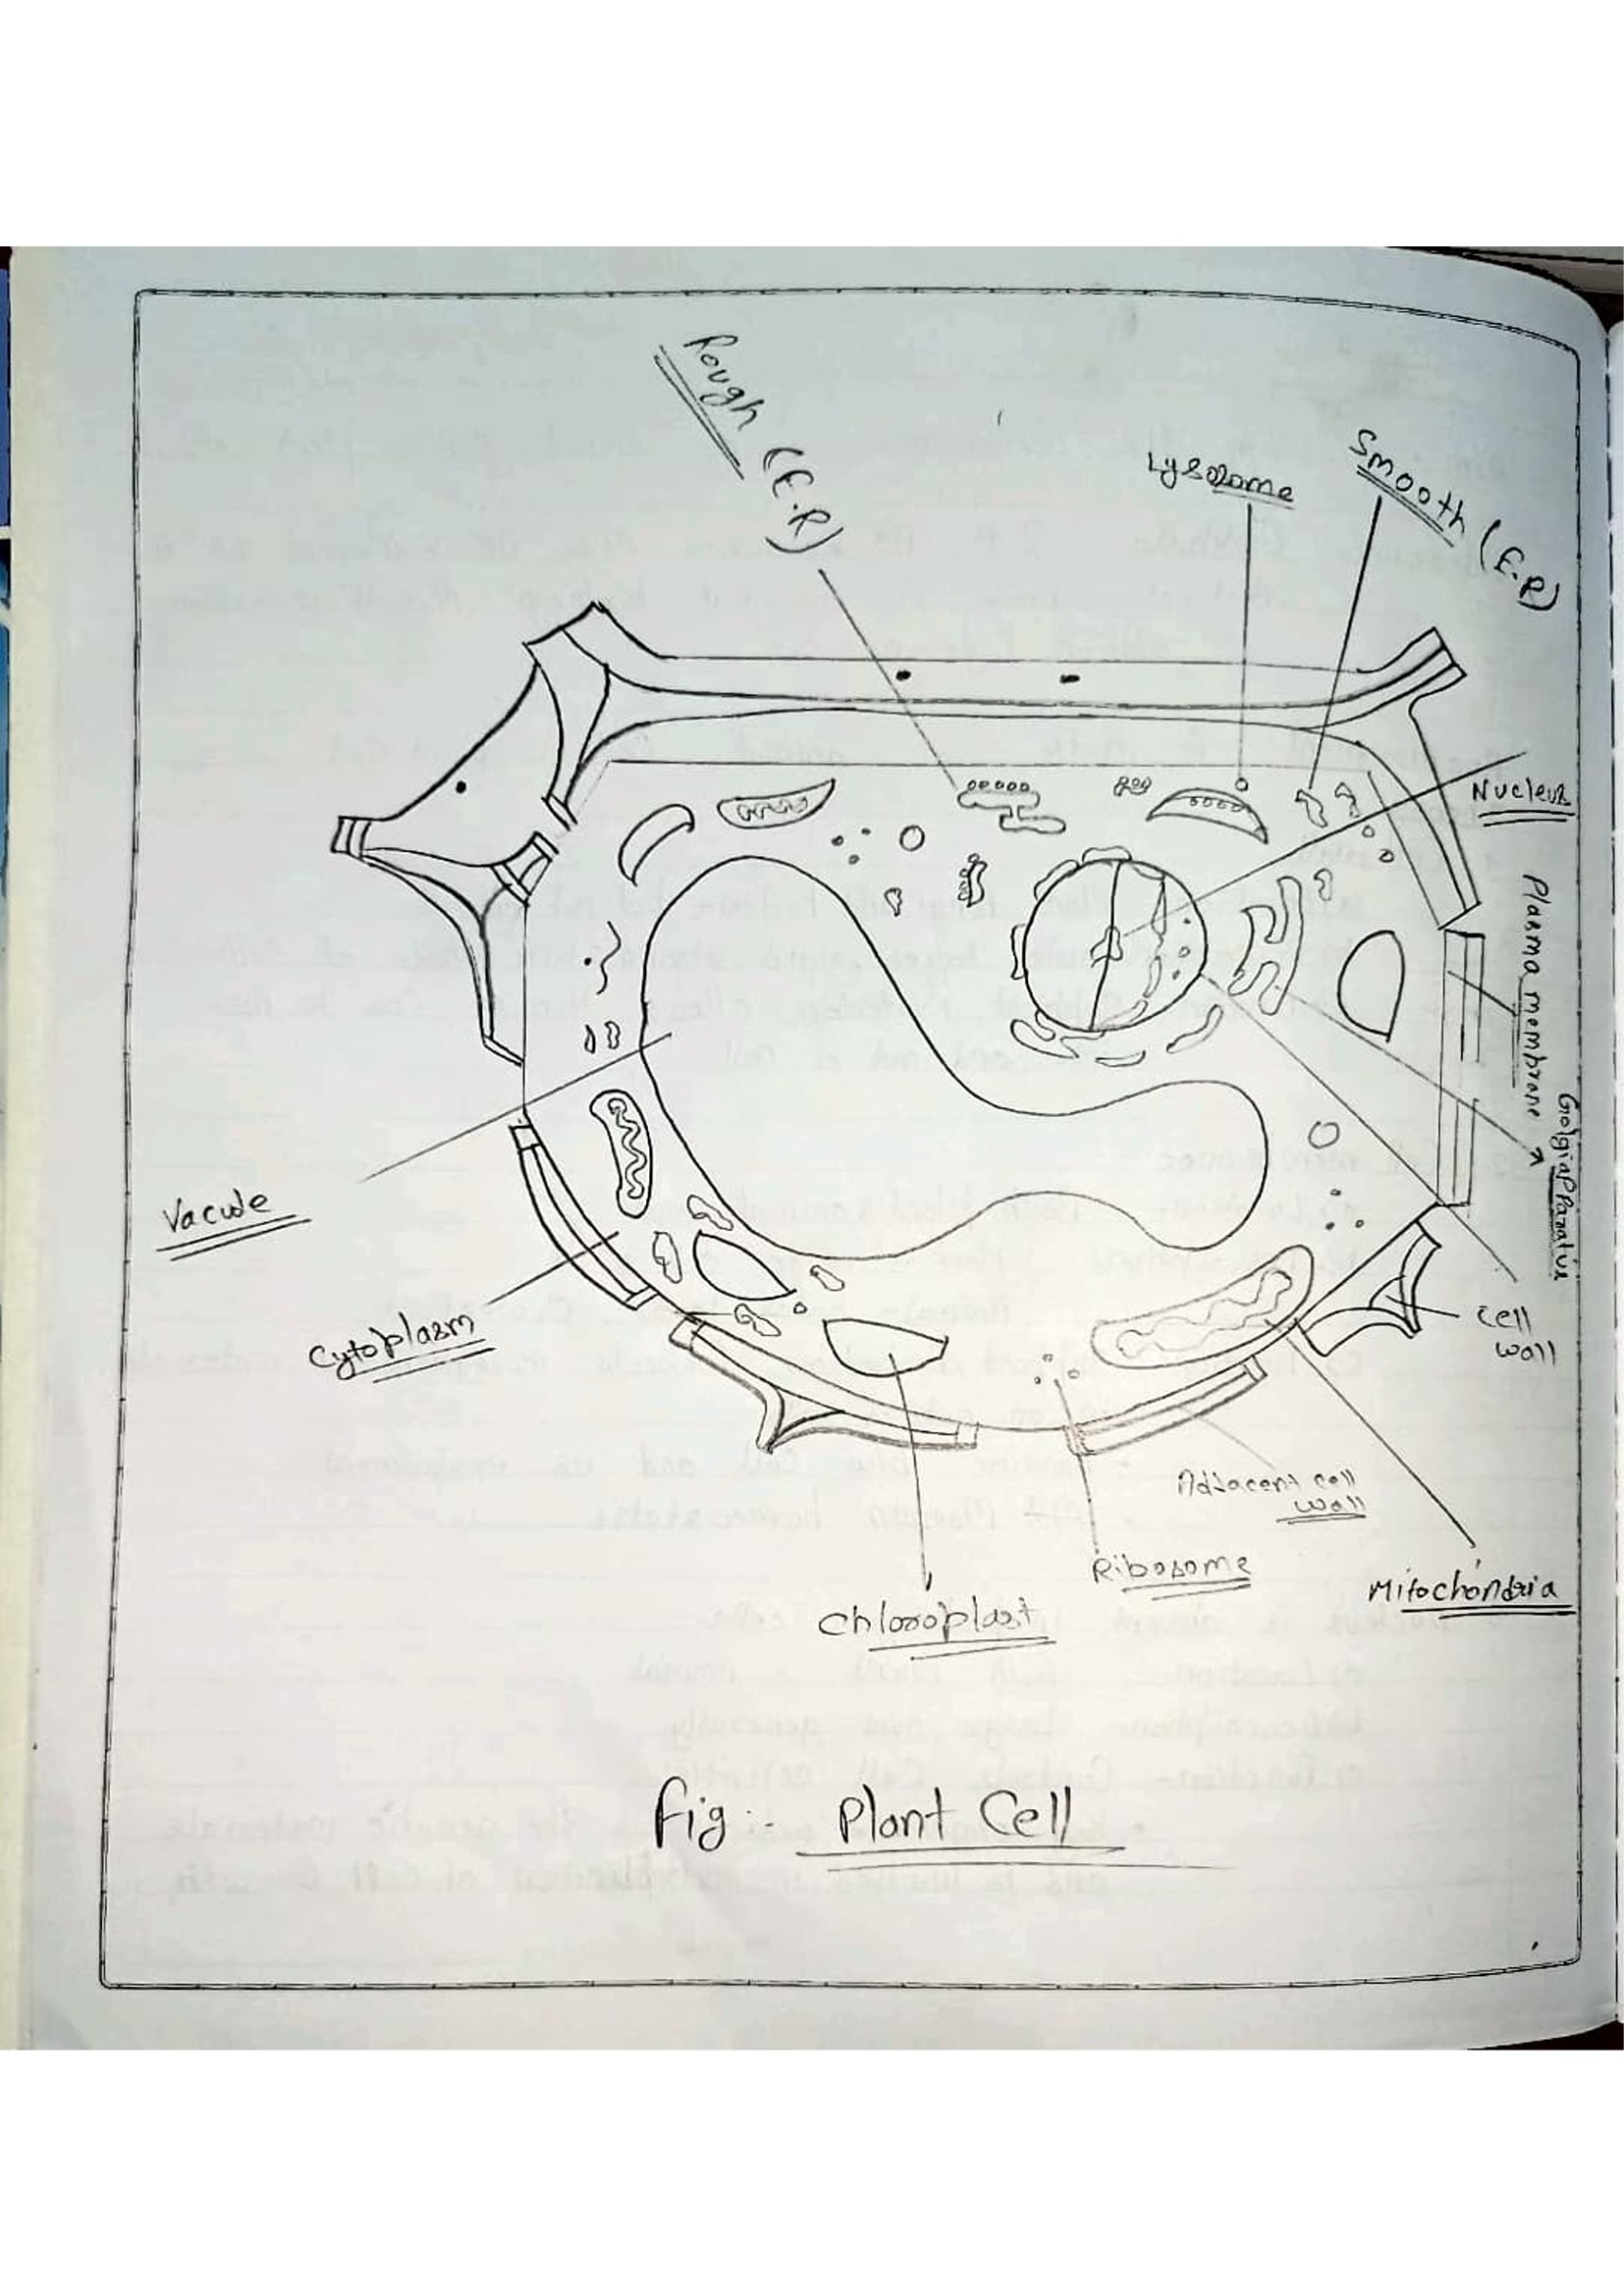 Rough (E.R)
Lysosome
Smooth (E.R)
Nucleus
Plasma membrane
Golgiapparatus
Vacuole
Cytoplasm
Cell
wall
Adjacent cell
wall
Ribosome
Mitochondria
Chloroplast
Fig :- Plant Cell